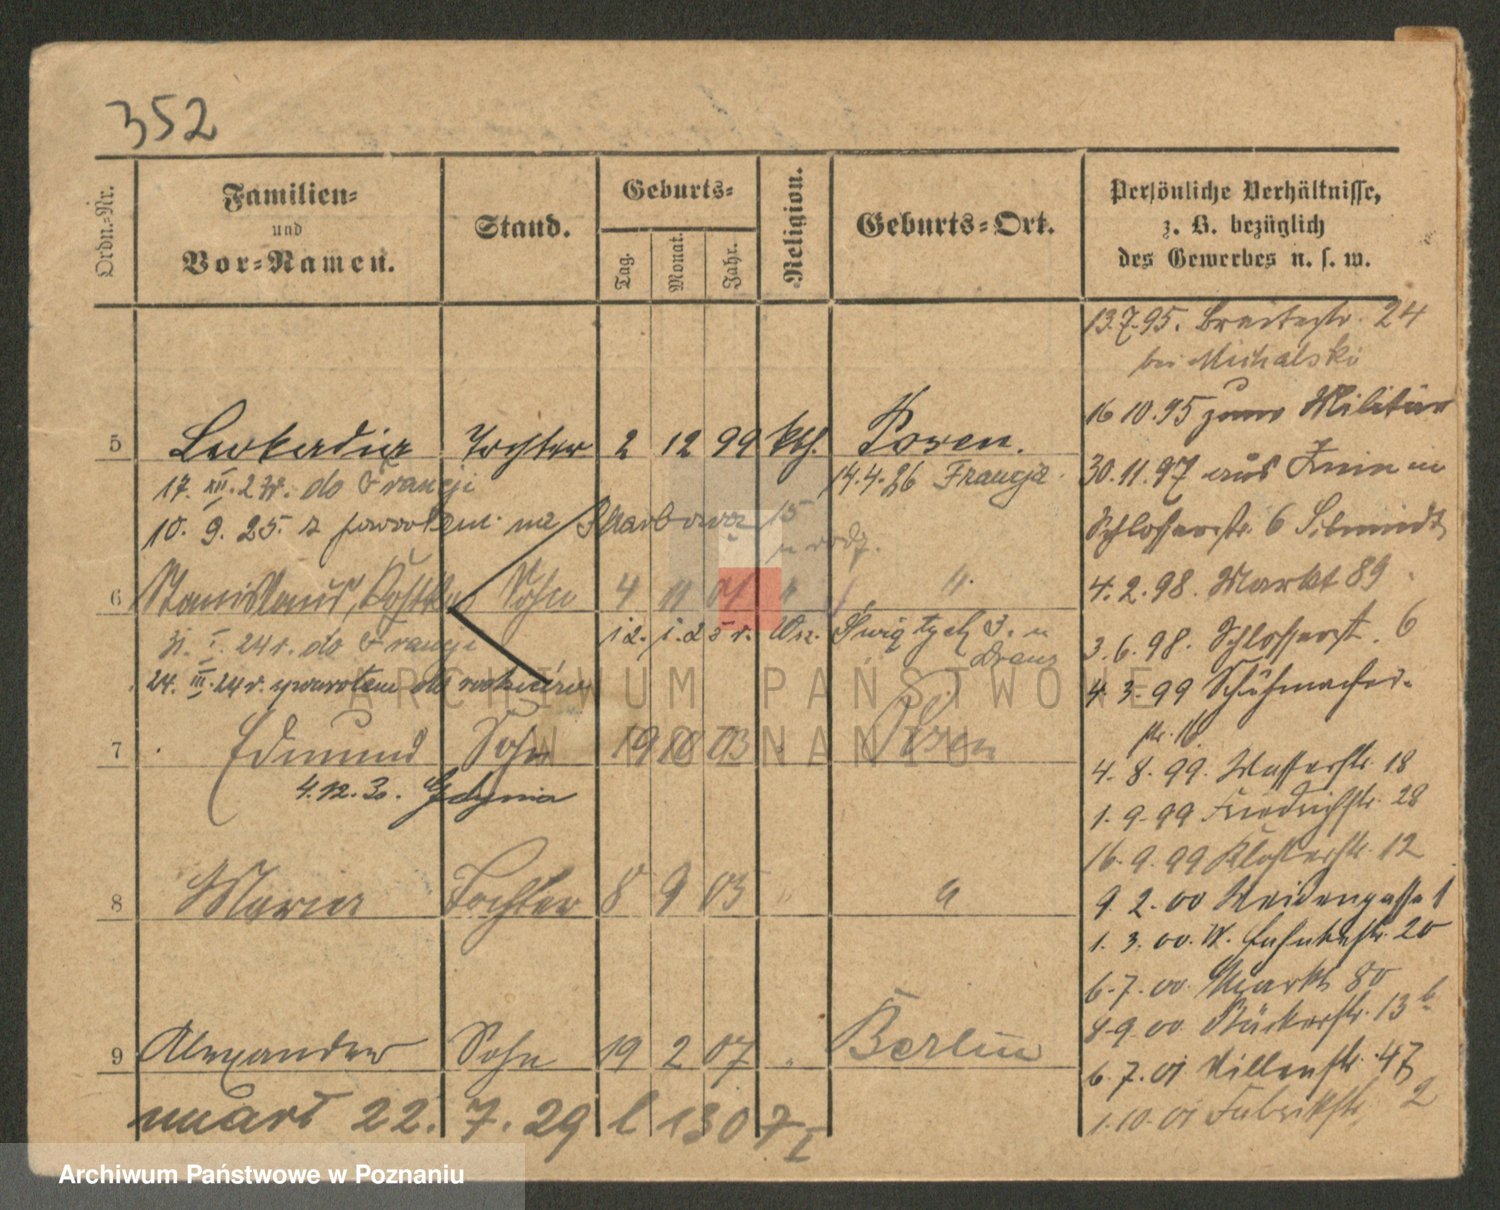 352
Ordn.-Nr.
Familien-
und
Vor-Namen.
Stand.
Geburts-
Tag.
Monat.
Jahr.
Religion.
Geburts-Ort.
Persönliche Verhältnisse,
z. B. bezüglich
des Gewerbes u. s. w.
13.7.95. Breitestr. 24
bei Michalski
16 10.95 zum Militär
5 Leokadia Tochter 2 12 99 kth. Posen.
17. XII. do Francji
14.4.26 Francja
30.11.97 aus Znin in
10. 9. 25. z powrotem na Skarbowa 15
u rodz.
Schlosserstr. 6 Schmidt
6 Stanislaus, Kostka Sohn 4 11 01 " "
4.2.98. Markt 89
31. I. 24 r. do Francji
3.6.98. Schlosserst. 6
24. III. 24 r. powrotem do rodziców
4.3.99 Schuhmacher-
str. 16
7 Edmund Sohn 19 10 03 Posen
4.12.30. Gdynia
4.8.99. Wasserstr. 18
1.9.99 Friedrichstr. 28
16.9.99 Klosterstr. 12
8 Maria Tochter 8 9 05 " "
9.2.00 Weidengasse 1
1.3.00. 20
6.7.00 Markt 80
8.9.00 Bäckerstr. 13b
9 Alexander Sohn 19 2 07 " Berlin
6.7.01 Villenstr. 47
1.10.01 Fabrikstr. 2
umarł 22. 7. 29 l 1307 I
ARCHIWUM PAŃSTWOWE
W POZNANIU
Archiwum Państwowe w Poznaniu